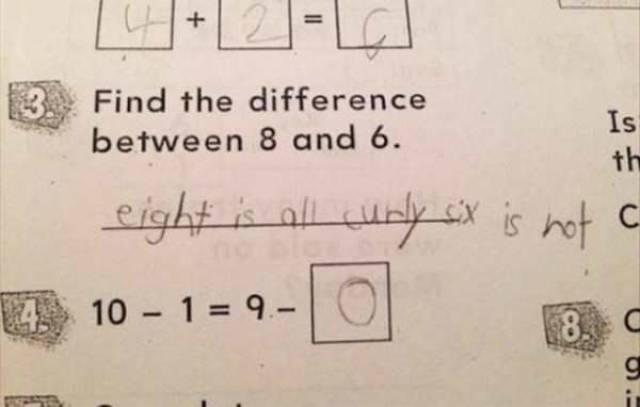 4 + 2 = 6
3. Find the difference
between 8 and 6.
eight is all curly six is not
4. 10 - 1 = 9 - 0
Is
th
C
8.